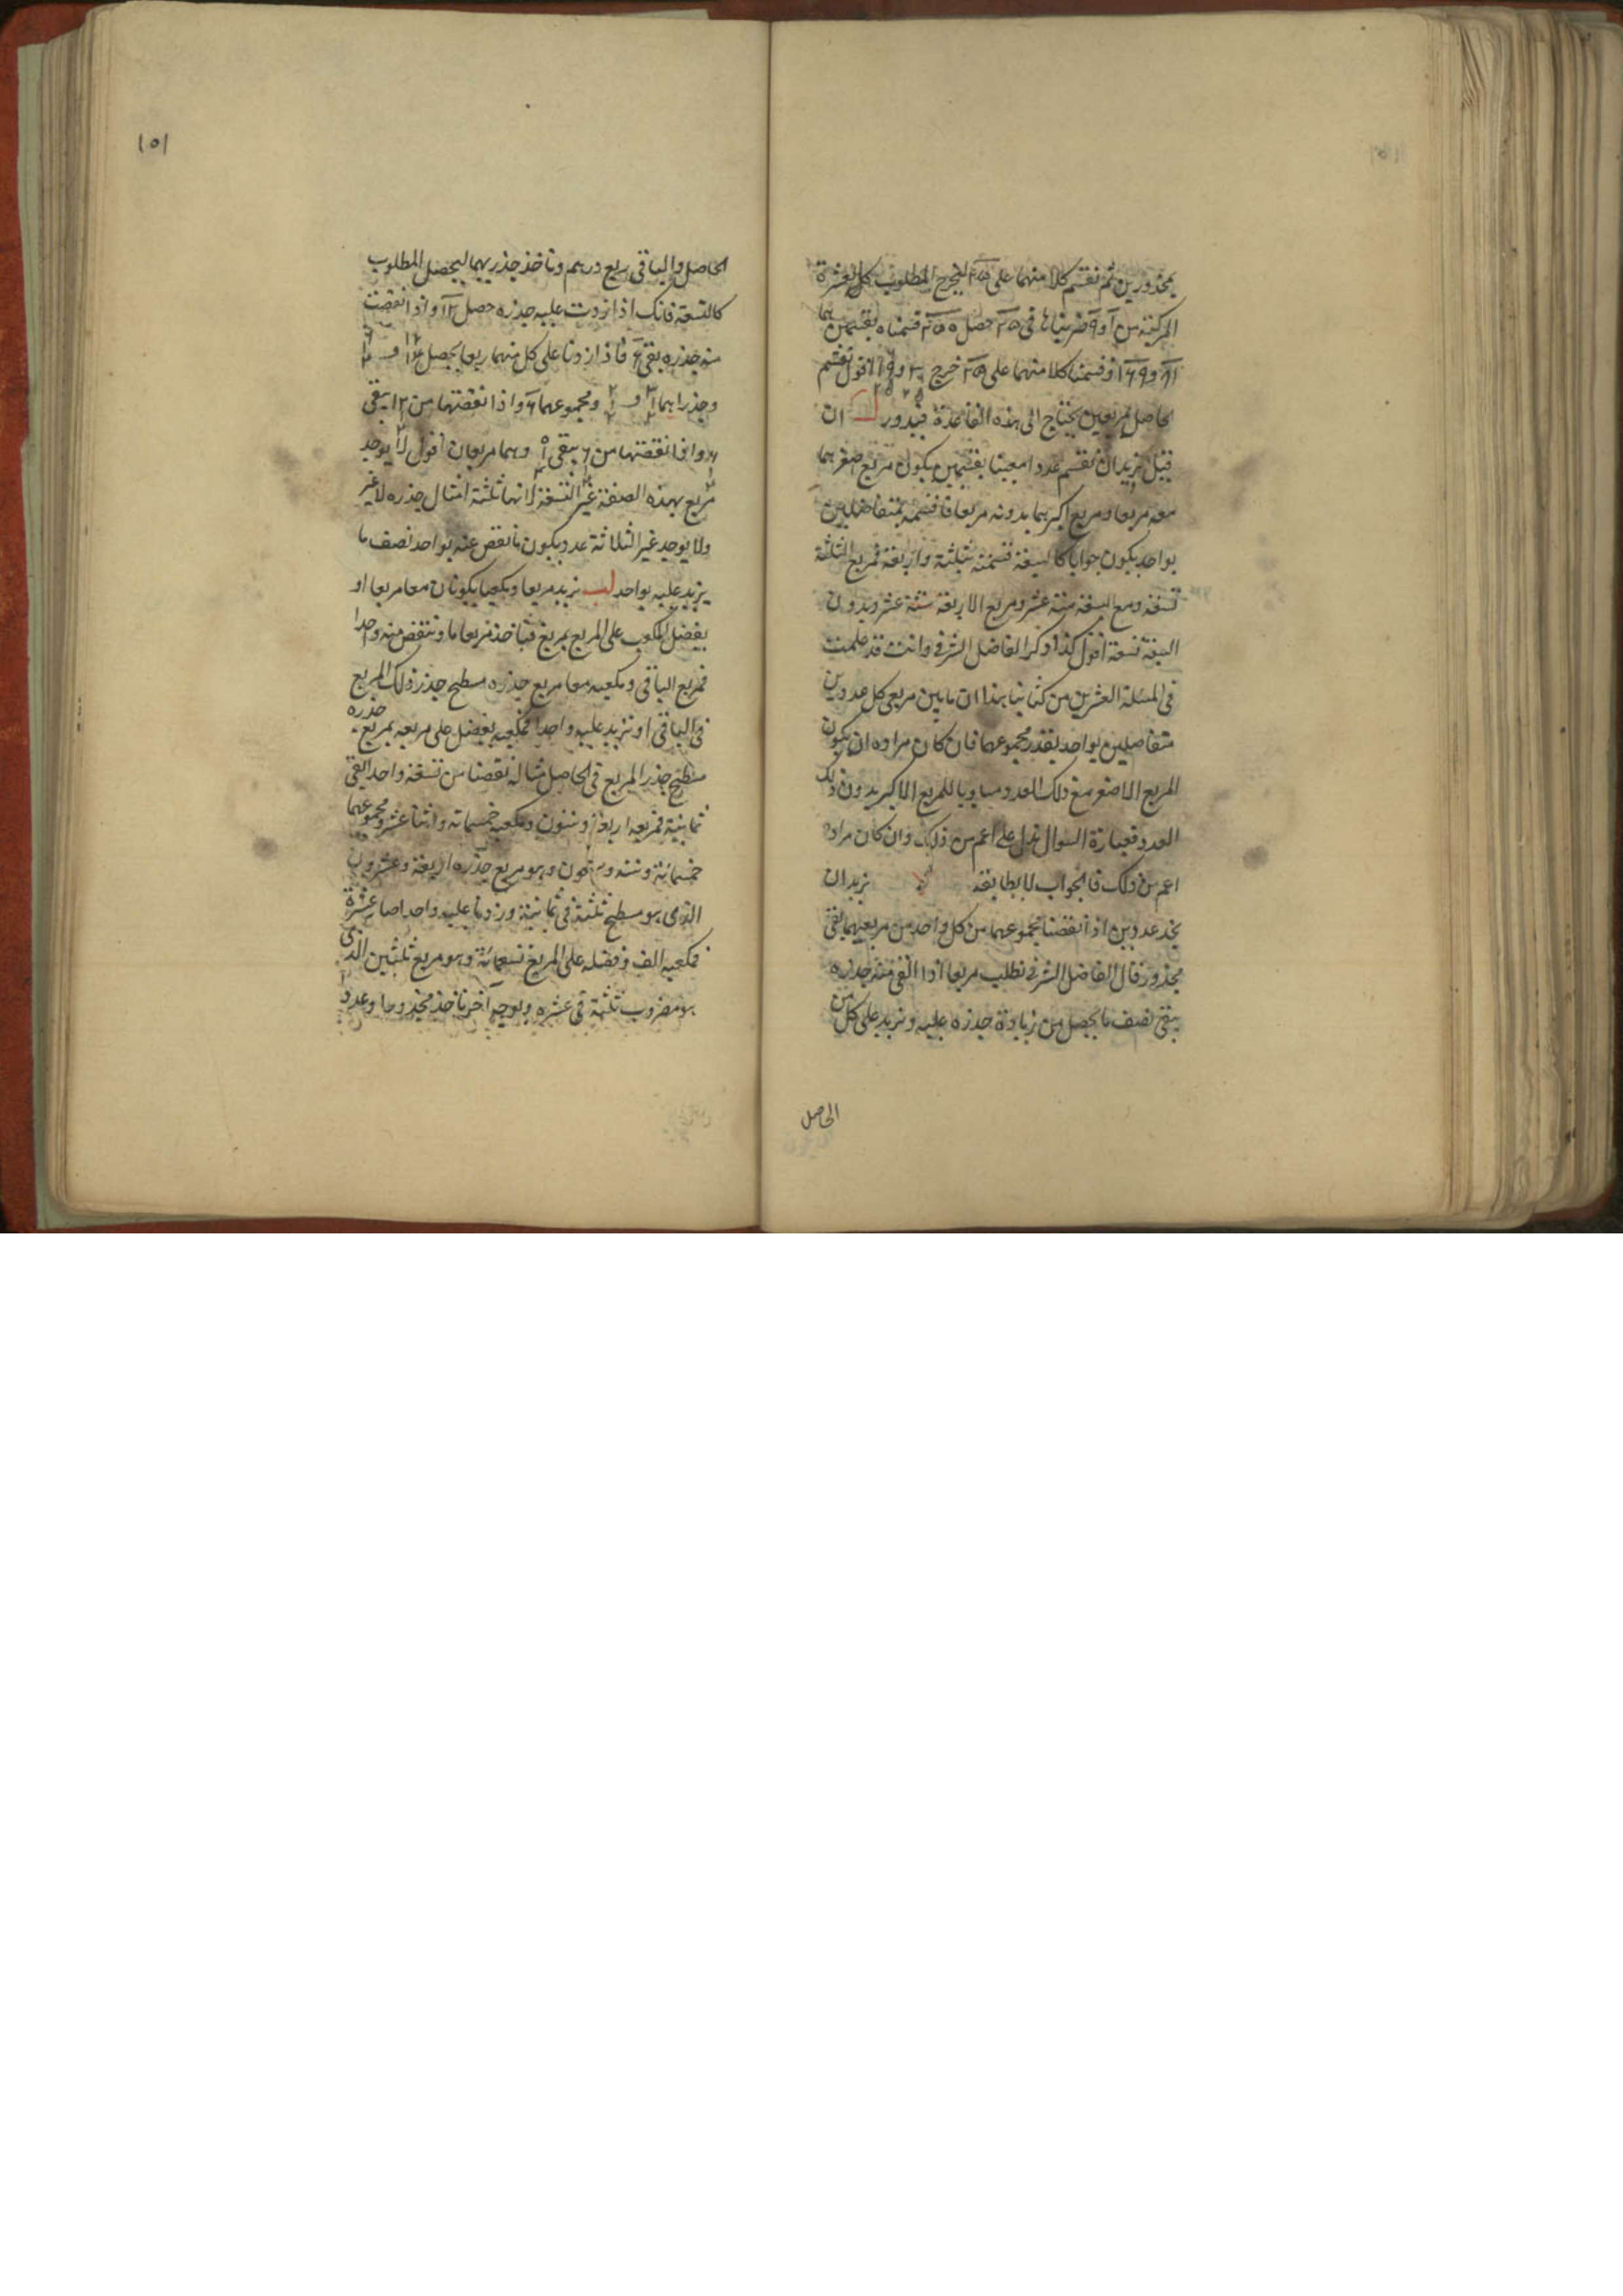 بمجذورين ثم نقسم كلا منهما على ٢٥ ليخرج المطلوب كالعشرة
المركبة من ١ و ٩ ضربناها في ٢٥ حصل ٢٥٠ قسمناه بقسمين هما
٨١ و ١٦٩ وقسمنا كلا منهما على ٢٥ خرج اقول تقسم
الحاصل بمربعين يحتاج الى هذه القاعدة فيدور ان
قيل نريد ان نقسم عددا معينا بقسمين يكون مربع اصغرهما
معه مربعا ومربع اكبرهما بدونه مربعا فاقسمه بمتفاضلين
بواحد يكون جوابا كالسبعة قسمته بثلثة واربعة فمربع الثلثة
تسعة ومع السبعة ستة عشر ومربع الاربعة ستة عشر وبدون
السبعة تسعة اقول كذا ذكر الفاضل الشرفي وانت قد علمت
في المسئلة العشرين من كتابنا هذا ان ما بين مربعي كل عددين
متفاضلين بواحد بقدر مجموعهما فان كان مراده ان يكون
المربع الاصغر مع ذلك العدد مساويا للمربع الاكبر بدون ذلك
العدد فعبارة السوال تدل على اعم من ذلك وان كان مراده
اعم من ذلك فالجواب لا يطابقه لا نريد ان
نجد عددين اذا نقصنا مجموعهما من كل واحد من مربعيهما بقي
مجذور قال الفاضل الشرفي نطلب مربعا اذا القي منه جذره
يبقى نصف ما يحصل من زيادة جذره عليه ونزيد على كل من
الحاصل
١٥١
الحاصل والباقي ربع درهم وناخذ جذريهما ليحصل المطلوب
كالتسعة فانك اذا زدت عليه جذره حصل ١٢ واذا نقصت
منه جذره بقي ٦ فاذا زدنا على كل منهما ربعا يحصل
وجذراهما و ومجموعهما ٦ واذا نقصتها من ١٢ يبقى
واذا نقصتها من ٦ يبقى وهما مربعان اقول لا يوجد
مربع بهذه الصفة غير التسعة لانها ثلثة امثال جذره لا غير
ولا يوجد غير الثلاثة عدد يكون ما نقص عنه بواحد نصف ما
يزيد عليه بواحد لب نريد مربعا ومكعبا يكونان معا مربعا او
يفضل المكعب على المربع بمربع فناخذ مربعا ما وننقص منه واحدا
فمربع الباقي ومكعبه معا مربع جذره مسطح جذر ذلك المربع
في الباقي او نزيد عليه واحدا فمكعبه يفضل على مربعه بمربع جذره
مسطح جذر المربع في الحاصل مثاله نقصنا من تسعة واحدا بقي
ثمانية فمربعه اربعة وستون ومكعبه خمسمائة واثنا عشر ومجموعهما
خمسمائة وستة وسبعون وهو مربع جذره اربعة وعشرون
الذي هو مسطح ثلثة في ثمانية وزدنا عليه واحدا صار عشرة
فمكعبه الف وفضله على المربع تسعمائة وهو مربع ثلثين الذي
هو مضروب ثلثة في عشرة وبوجه آخر ناخذ مجذورا وعددا